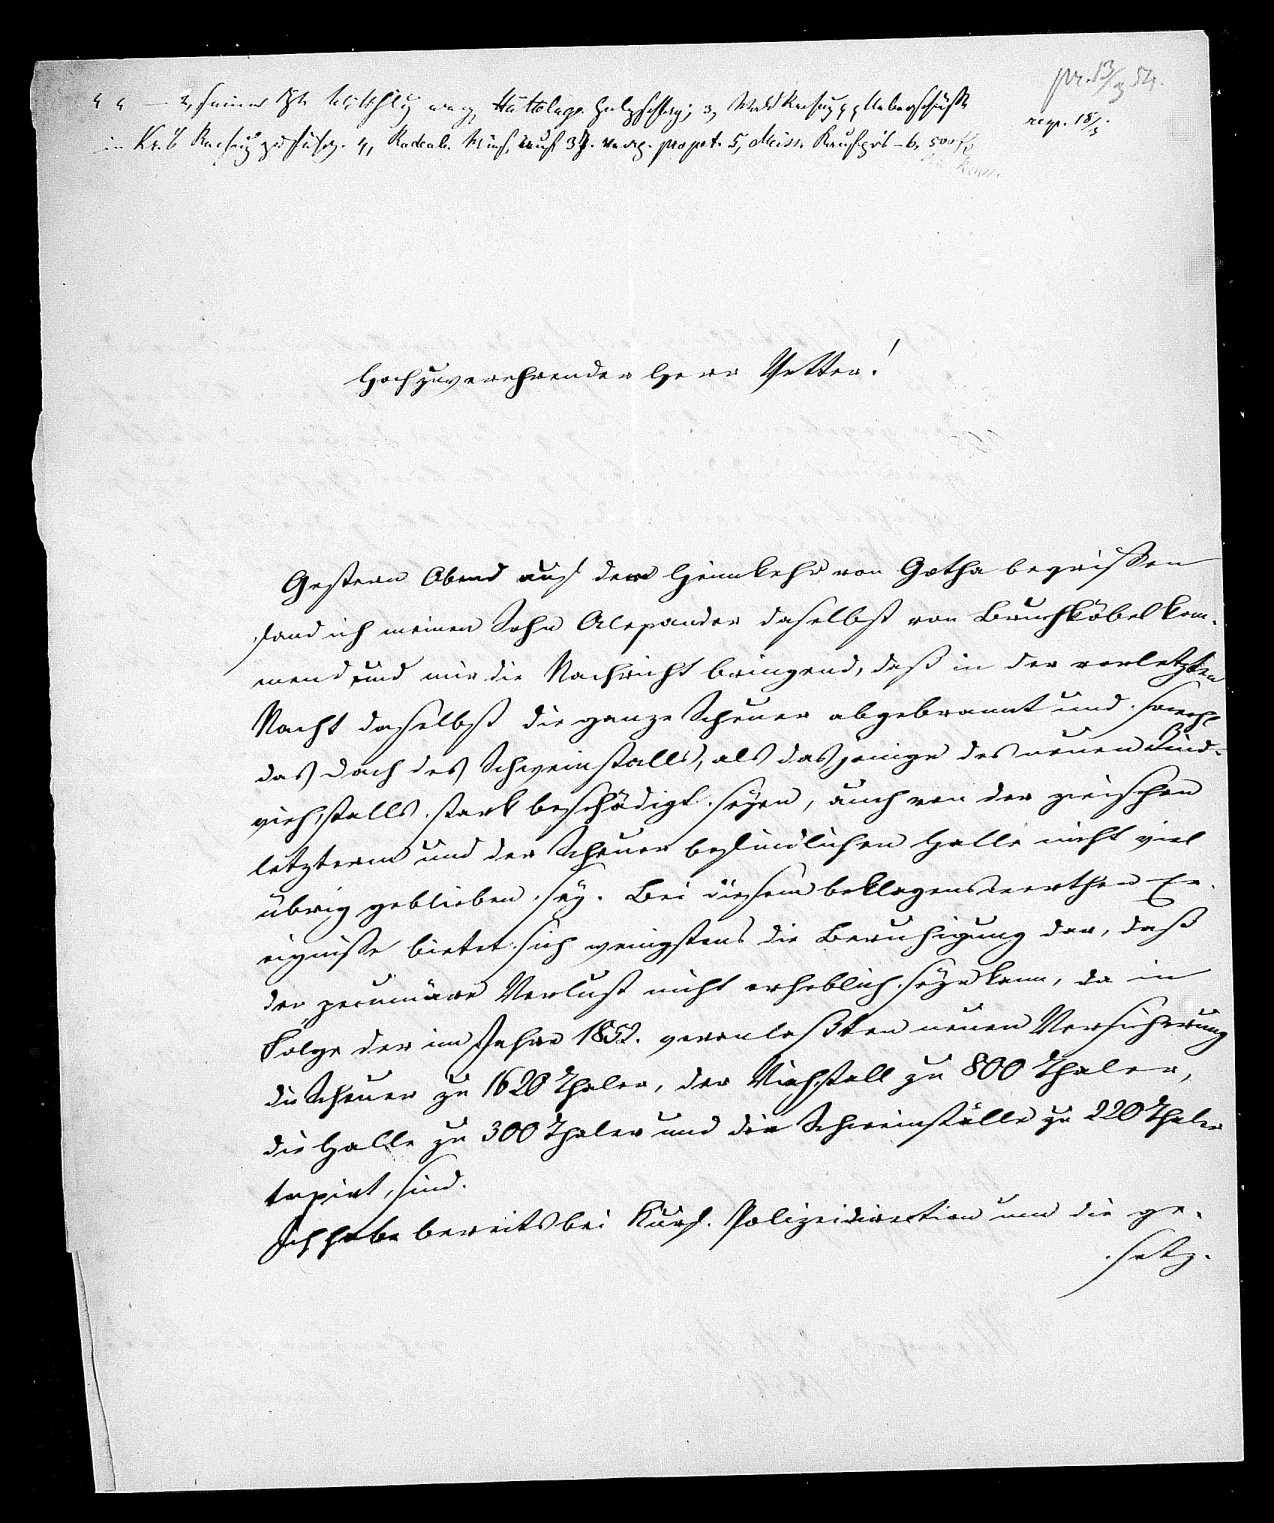 pr. 13/3 54.
resp. 18/3.
in
Hochzuverehrender Herr Vetter!
Gestern Abend auf der Heimkehr von Gotha begriffen
fand ich meinen Sohn Alexander daselbst von Bruchköbel kom-
mend und mir die Nachricht bringend, daß in der vorletzten
Nacht daselbst die ganze Scheuer abgebrannt und sowohl
das Dach des Schweinstalls, als dasjenige des neuen Rind-
viehstalls stark beschädigt seyen, auch von der zwischen
letzterm und der Scheuer befindlichen Halle nicht viel
übrig geblieben sey. Bei diesem beklagenswerthen Er-
eignisse bietet sich wenigstens die Beruhigung dar, daß
der pecuniäre Verlust nicht erheblich seyn kann, da in
Folge der im Jahre 1852. veranlaßten neuen Versicherung
die Scheuer zu 1620 Thaler, der Viehstall zu 800 Thaler,
die Halle zu 300 Thaler und die Schweinställe zu 220 Thaler
taxirt sind.
Ich habe bereits bei Kurf. Polizeidirection um die ge-
setz-